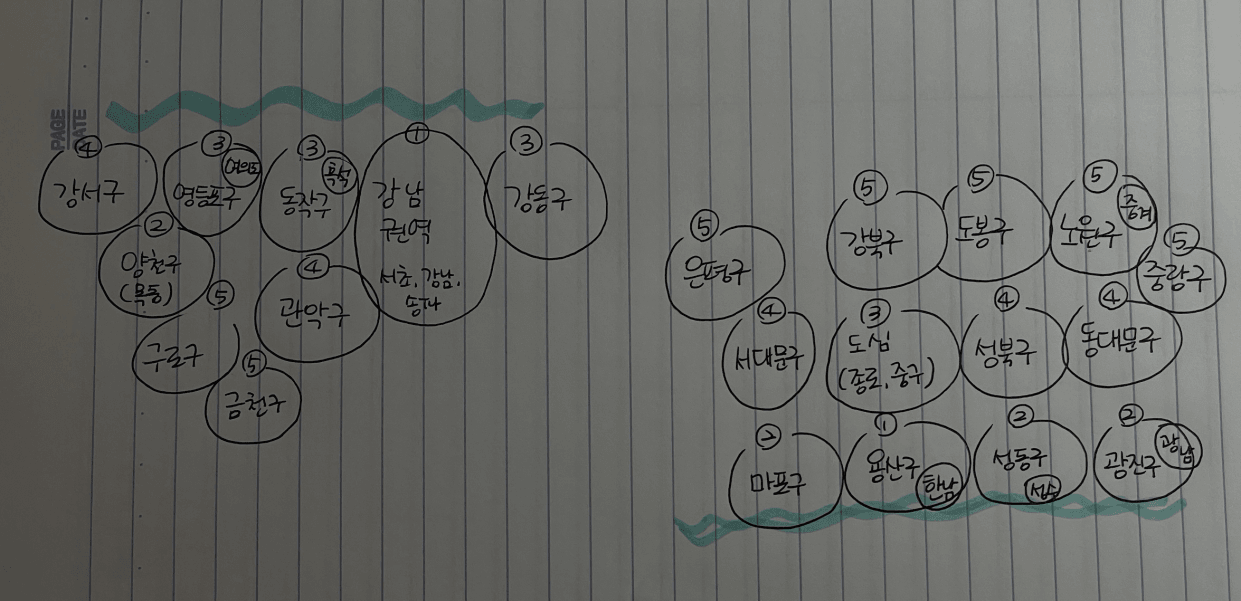 PAGE
DATE
④
강서구
③
영등포구
여의도
③
동작구
흑석
①
강남
권역
서초, 강남,
송파
③
강동구
②
양천구
(목동)
④
관악구
⑤
구로구
⑤
금천구
⑤
은평구
⑤
강북구
⑤
도봉구
⑤
노원구
중계
⑤
중랑구
④
서대문구
③
도심
(종로, 중구)
④
성북구
④
동대문구
②
마포구
①
용산구
한남
②
성동구
성수
②
광진구
광남